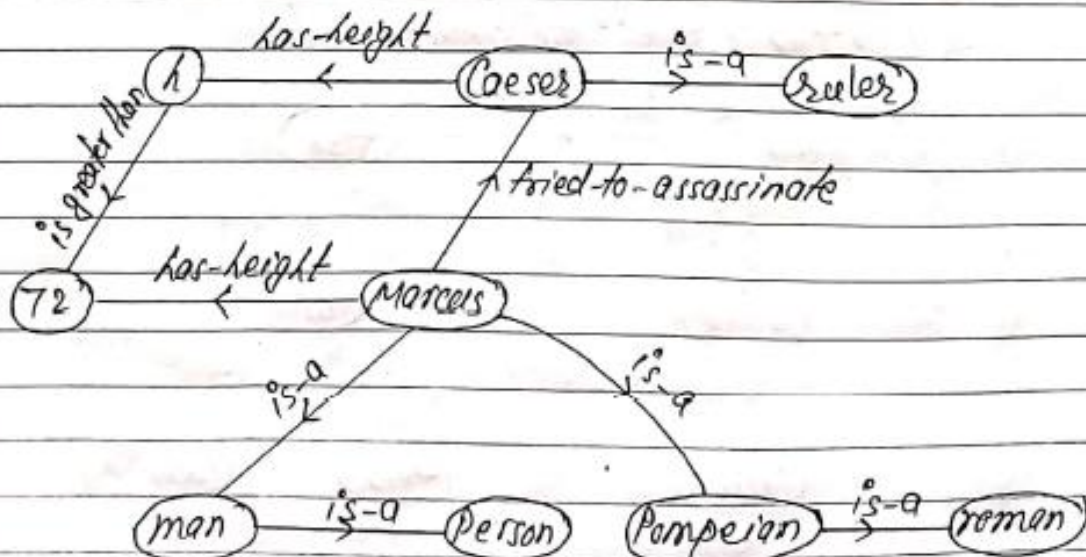 has-height
h Caeser is-a ruler
is greater than
tried-to-assassinate
has-height
72 Marcus
is-a is-a
man is-a Person Pompeian is-a roman